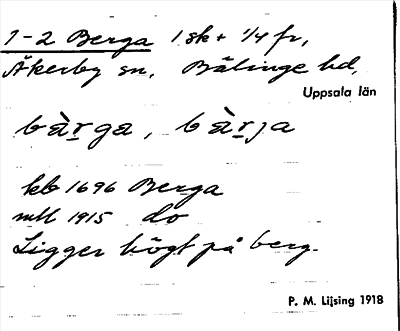 1-2 Berga 1 sk + 1/4 fr,
Åkerby sn, Bälinge hd,
Uppsala län
bàrga, bàrja
kb 1696 Berga
mtl 1915 do
Ligger högt på berg.
P. M. Lijsing 1918